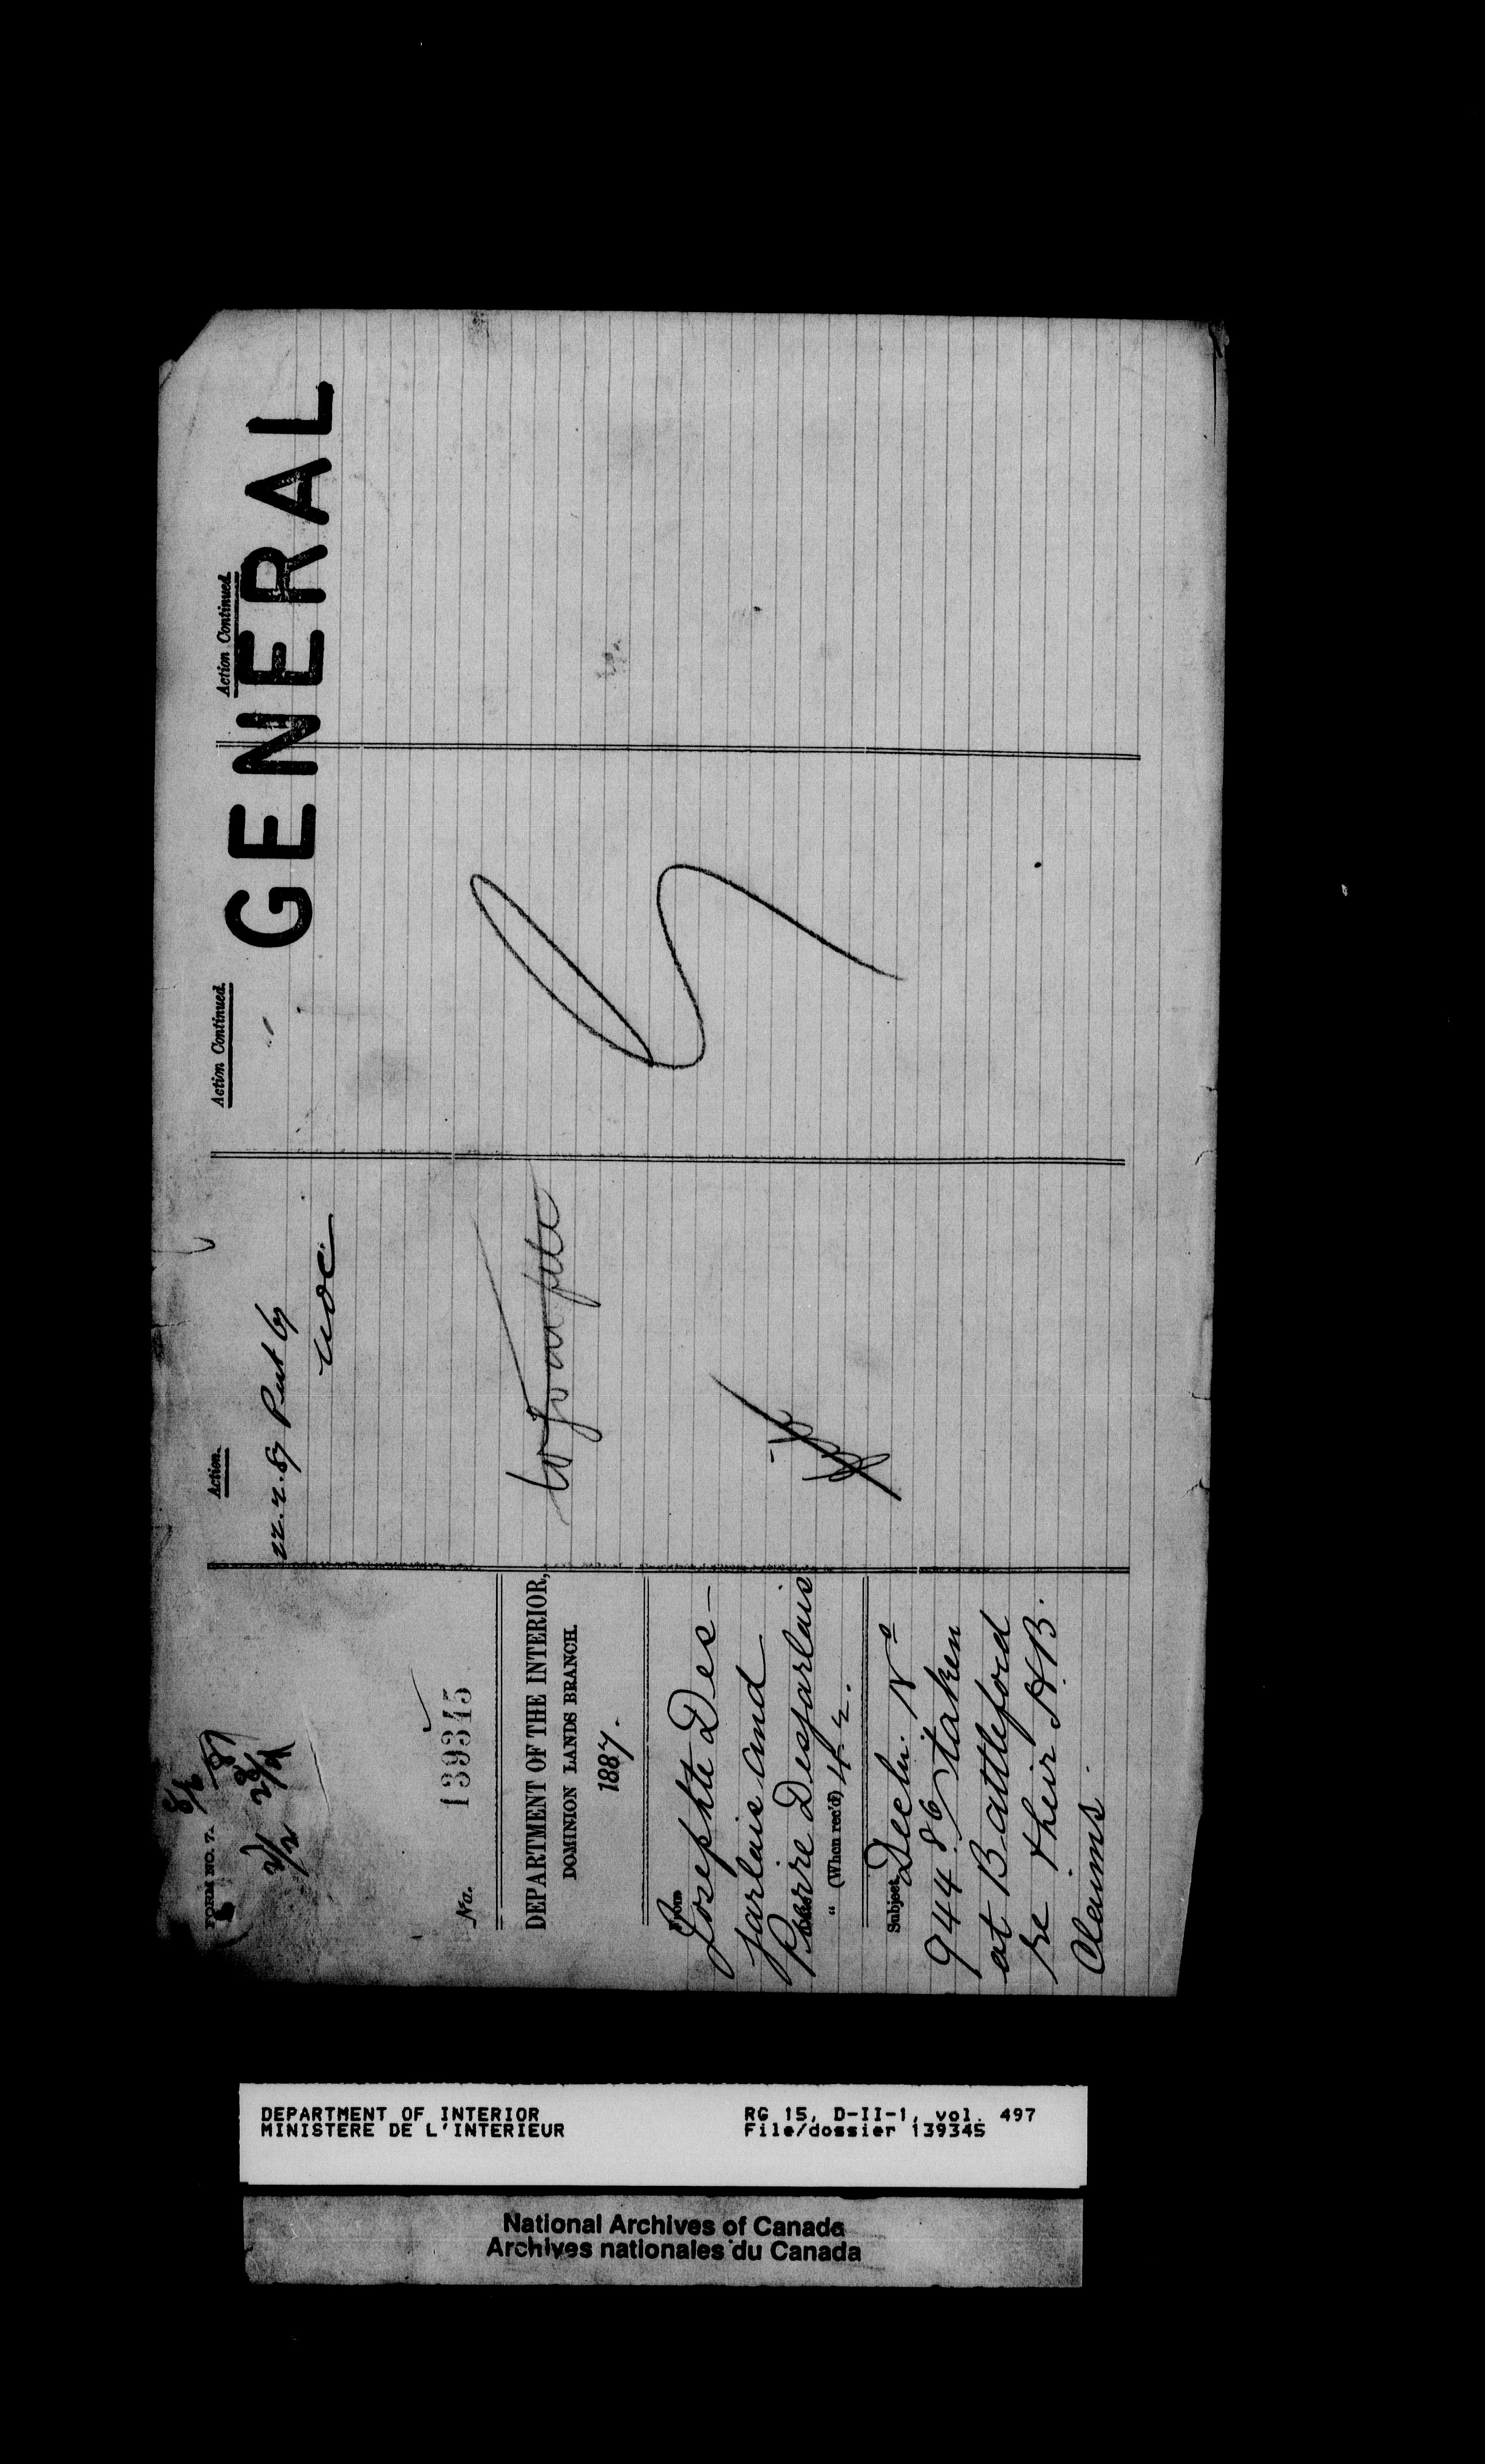 FORM NO. 7.
No. 139345
DEPARTMENT OF THE INTERIOR,
DOMINION LANDS BRANCH.
1887.
From
Josephte Des-
jarlais and
Pierre Desjarlais
" (When rec'd) 4.2.
Subject Decln. No
944.86 taken
at Battleford
re their H.B.
Claims.
Action.
22.2.87 Put by
Action Continued.
Action Continued.
GENERAL
DEPARTMENT OF INTERIOR RG 15, D-II-1, vol. 497
MINISTERE DE L'INTERIEUR File/dossier 139345
National Archives of Canada
Archives nationales du Canada